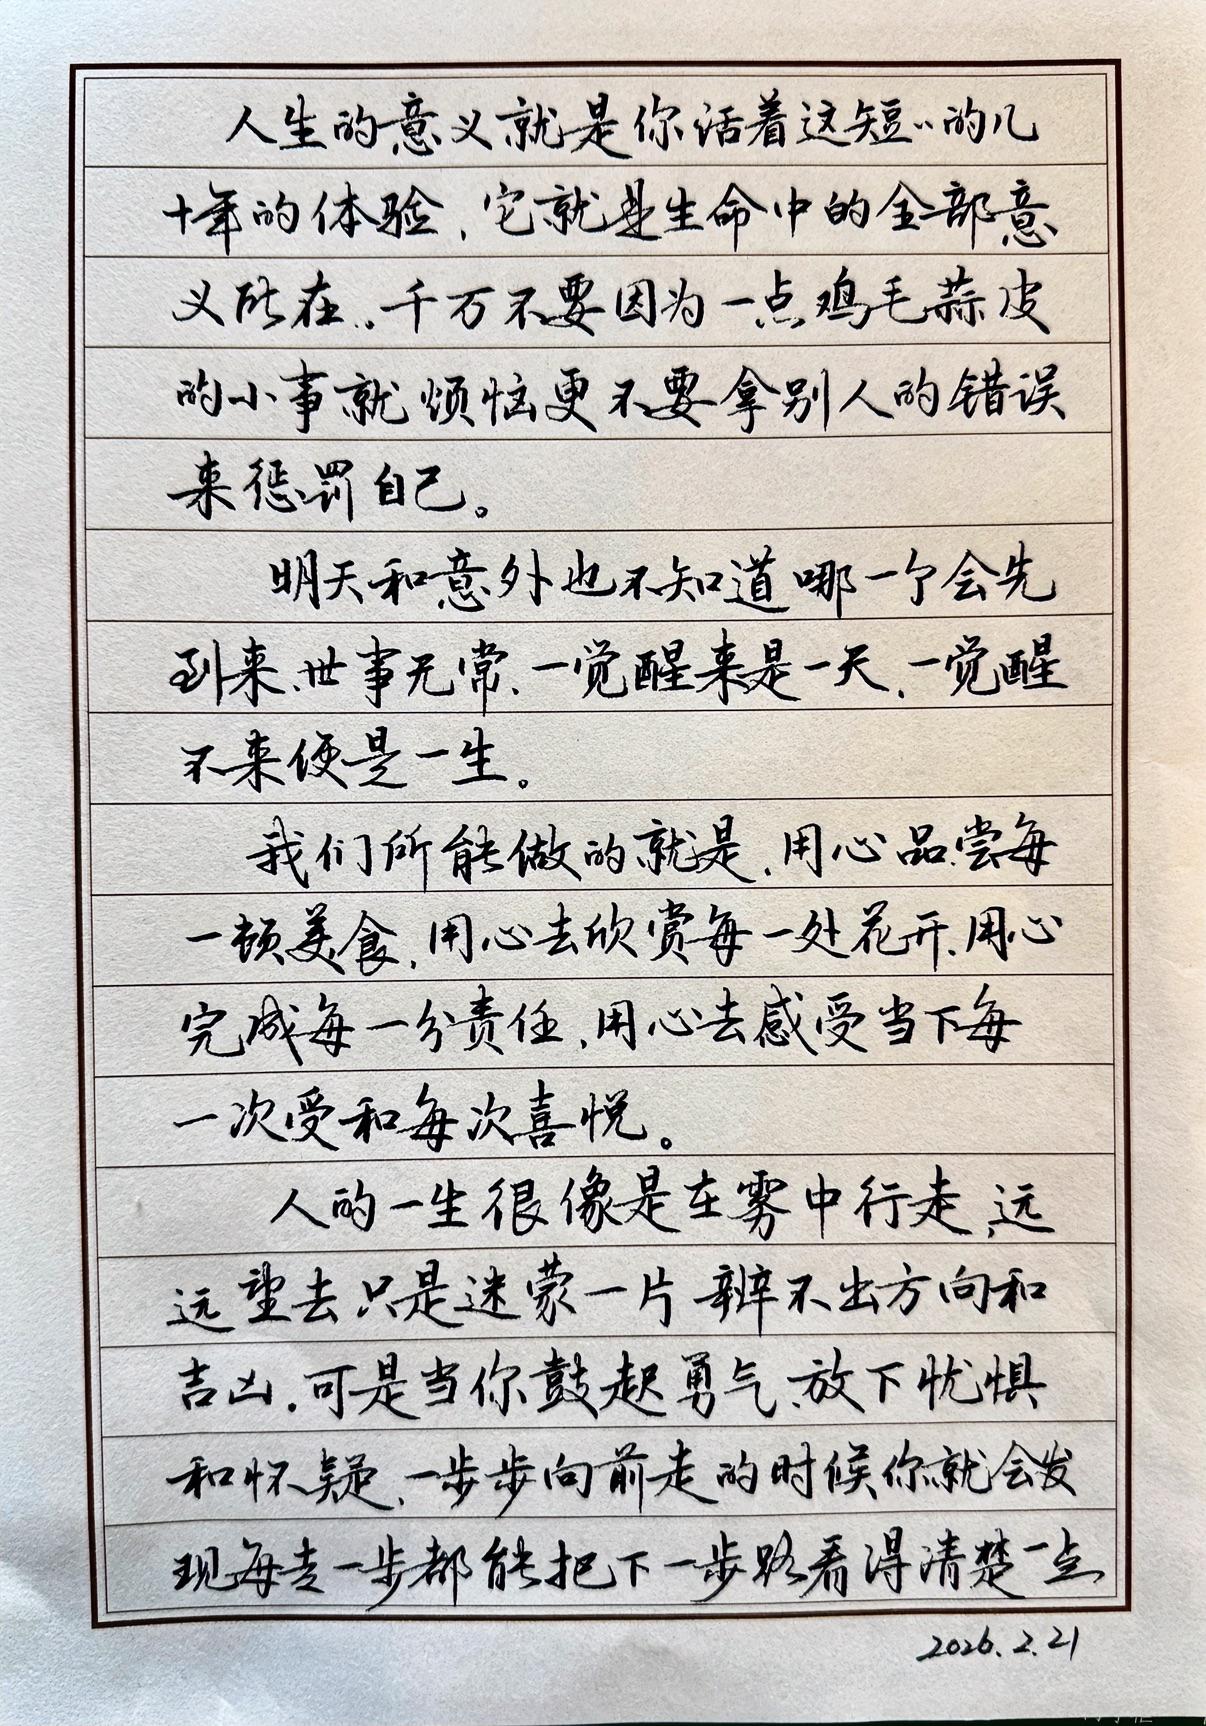 人生的意义就是你活着这短〃的几
十年的体验，它就是生命中的全部意
义所在，千万不要因为一点鸡毛蒜皮
的小事就烦恼更不要拿别人的错误
来惩罚自己。
明天和意外也不知道哪一个会先
到来、世事无常、一觉醒来是一天，一觉醒
不来便是一生。
我们所能做的就是，用心品尝每
一顿美食，用心去欣赏每一处花开，用心
完成每一分责任，用心去感受当下每
一次受和每次喜悦。
人的一生很像是在雾中行走，远
远望去只是迷蒙一片 辨不出方向和
吉凶．可是当你鼓起勇气、放下忧惧
和怀疑，一步步向前走的时候你就会发
现每走一步都能把下一步路看得清楚一点
2026.2.21